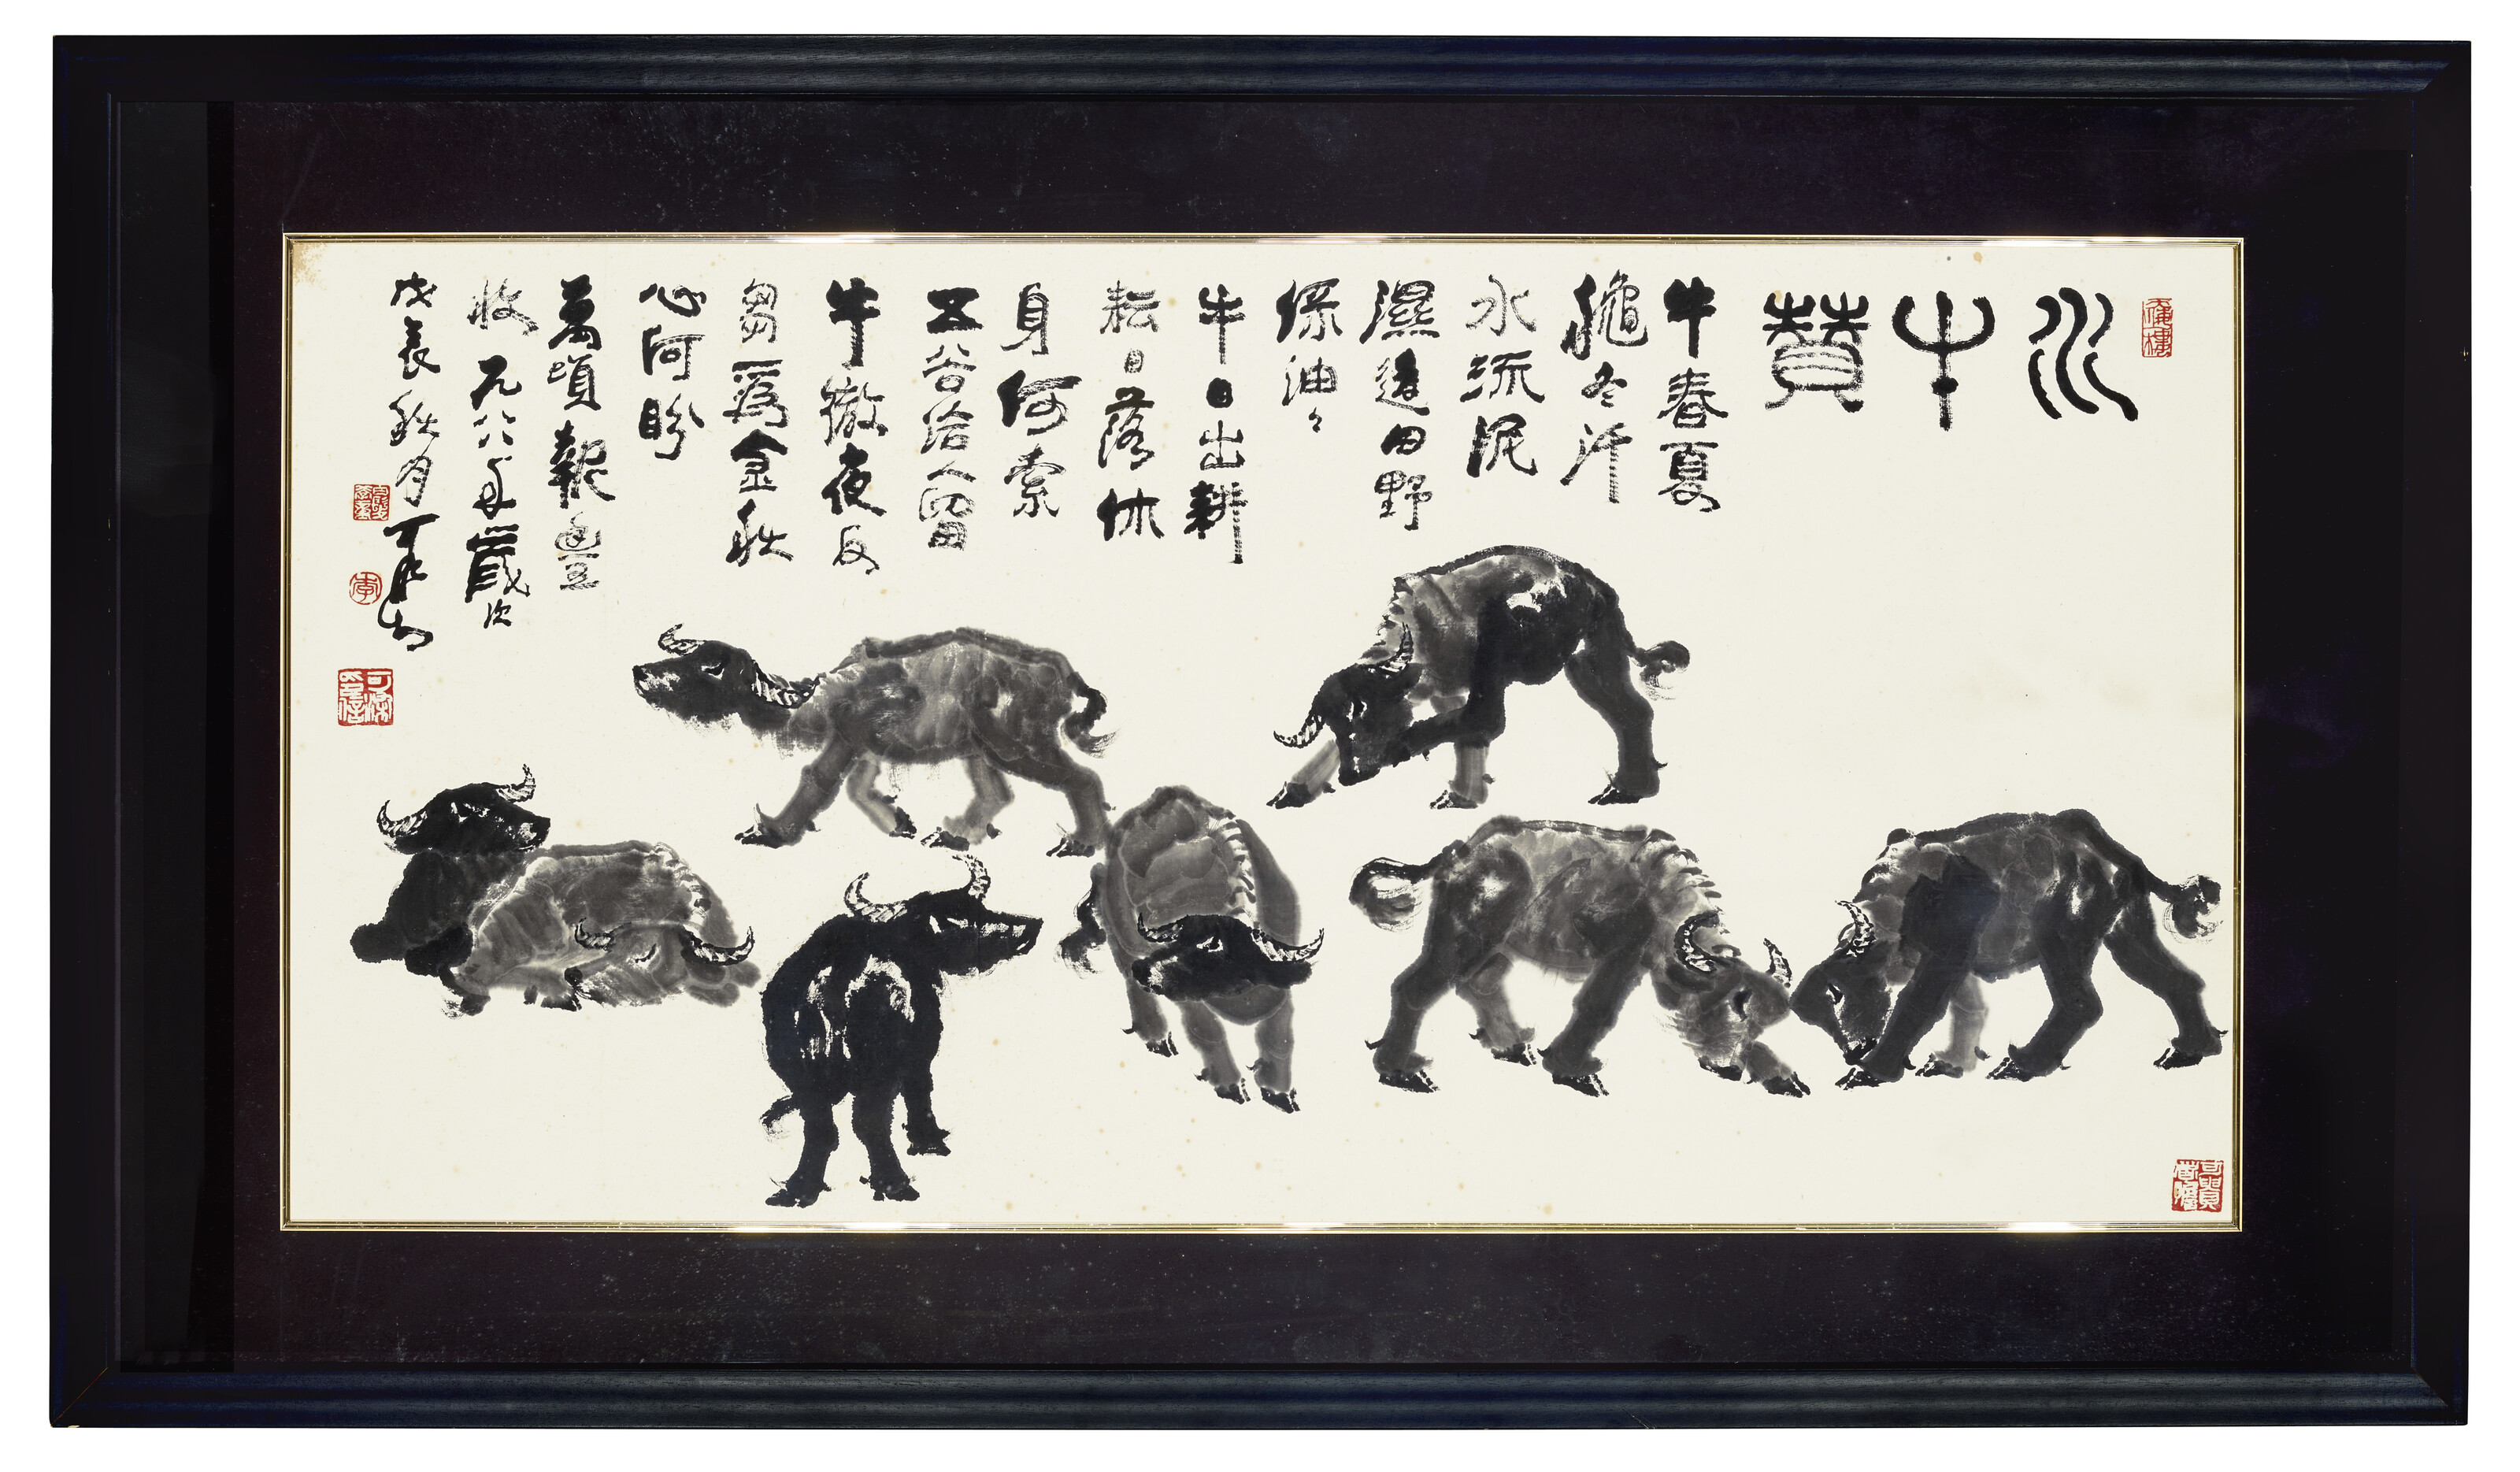 水牛贊
牛春夏
龝冬汗
水流泥
濕田野
油々
牛日出耕
耘日落休
身何索
五谷给人留
牛徹夜反
芻爲金秋
心何盼
萬頃報豐
收一九八八年歲次
戊辰秋月可染
李
可貴者膽